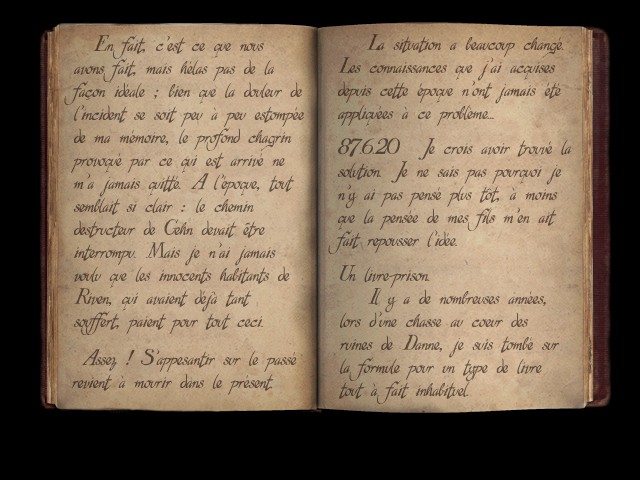 En fait, c'est ce que nous
avons fait, mais hélas pas de la
façon idéale ; bien que la douleur de
l'incident se soit peu à peu estompée
de ma mémoire, le profond chagrin
provoqué par ce qui est arrivé ne
m'a jamais quitté. A l'époque, tout
semblait si clair : le chemin
destructeur de Gehn devait être
interrompu. Mais je n'ai jamais
voulu que les innocents habitants de
Riven, qui avaient déjà tant
souffert, paient pour tout ceci.
Assez ! S'appesantir sur le passé
revient à mourir dans le présent.
La situation a beaucoup changé.
Les connaissances que j'ai acquises
depuis cette époque n'ont jamais été
appliquées à ce problème...
87.6.20 Je crois avoir trouvé la
solution. Je ne sais pas pourquoi je
n'y ai pas pensé plus tôt, à moins
que la pensée de mes fils m'en ait
fait repousser l'idée.
Un livre-prison.
Il y a de nombreuses années,
lors d'une chasse au coeur des
ruines de D'anne, je suis tombé sur
la formule pour un type de livre
tout à fait inhabituel.